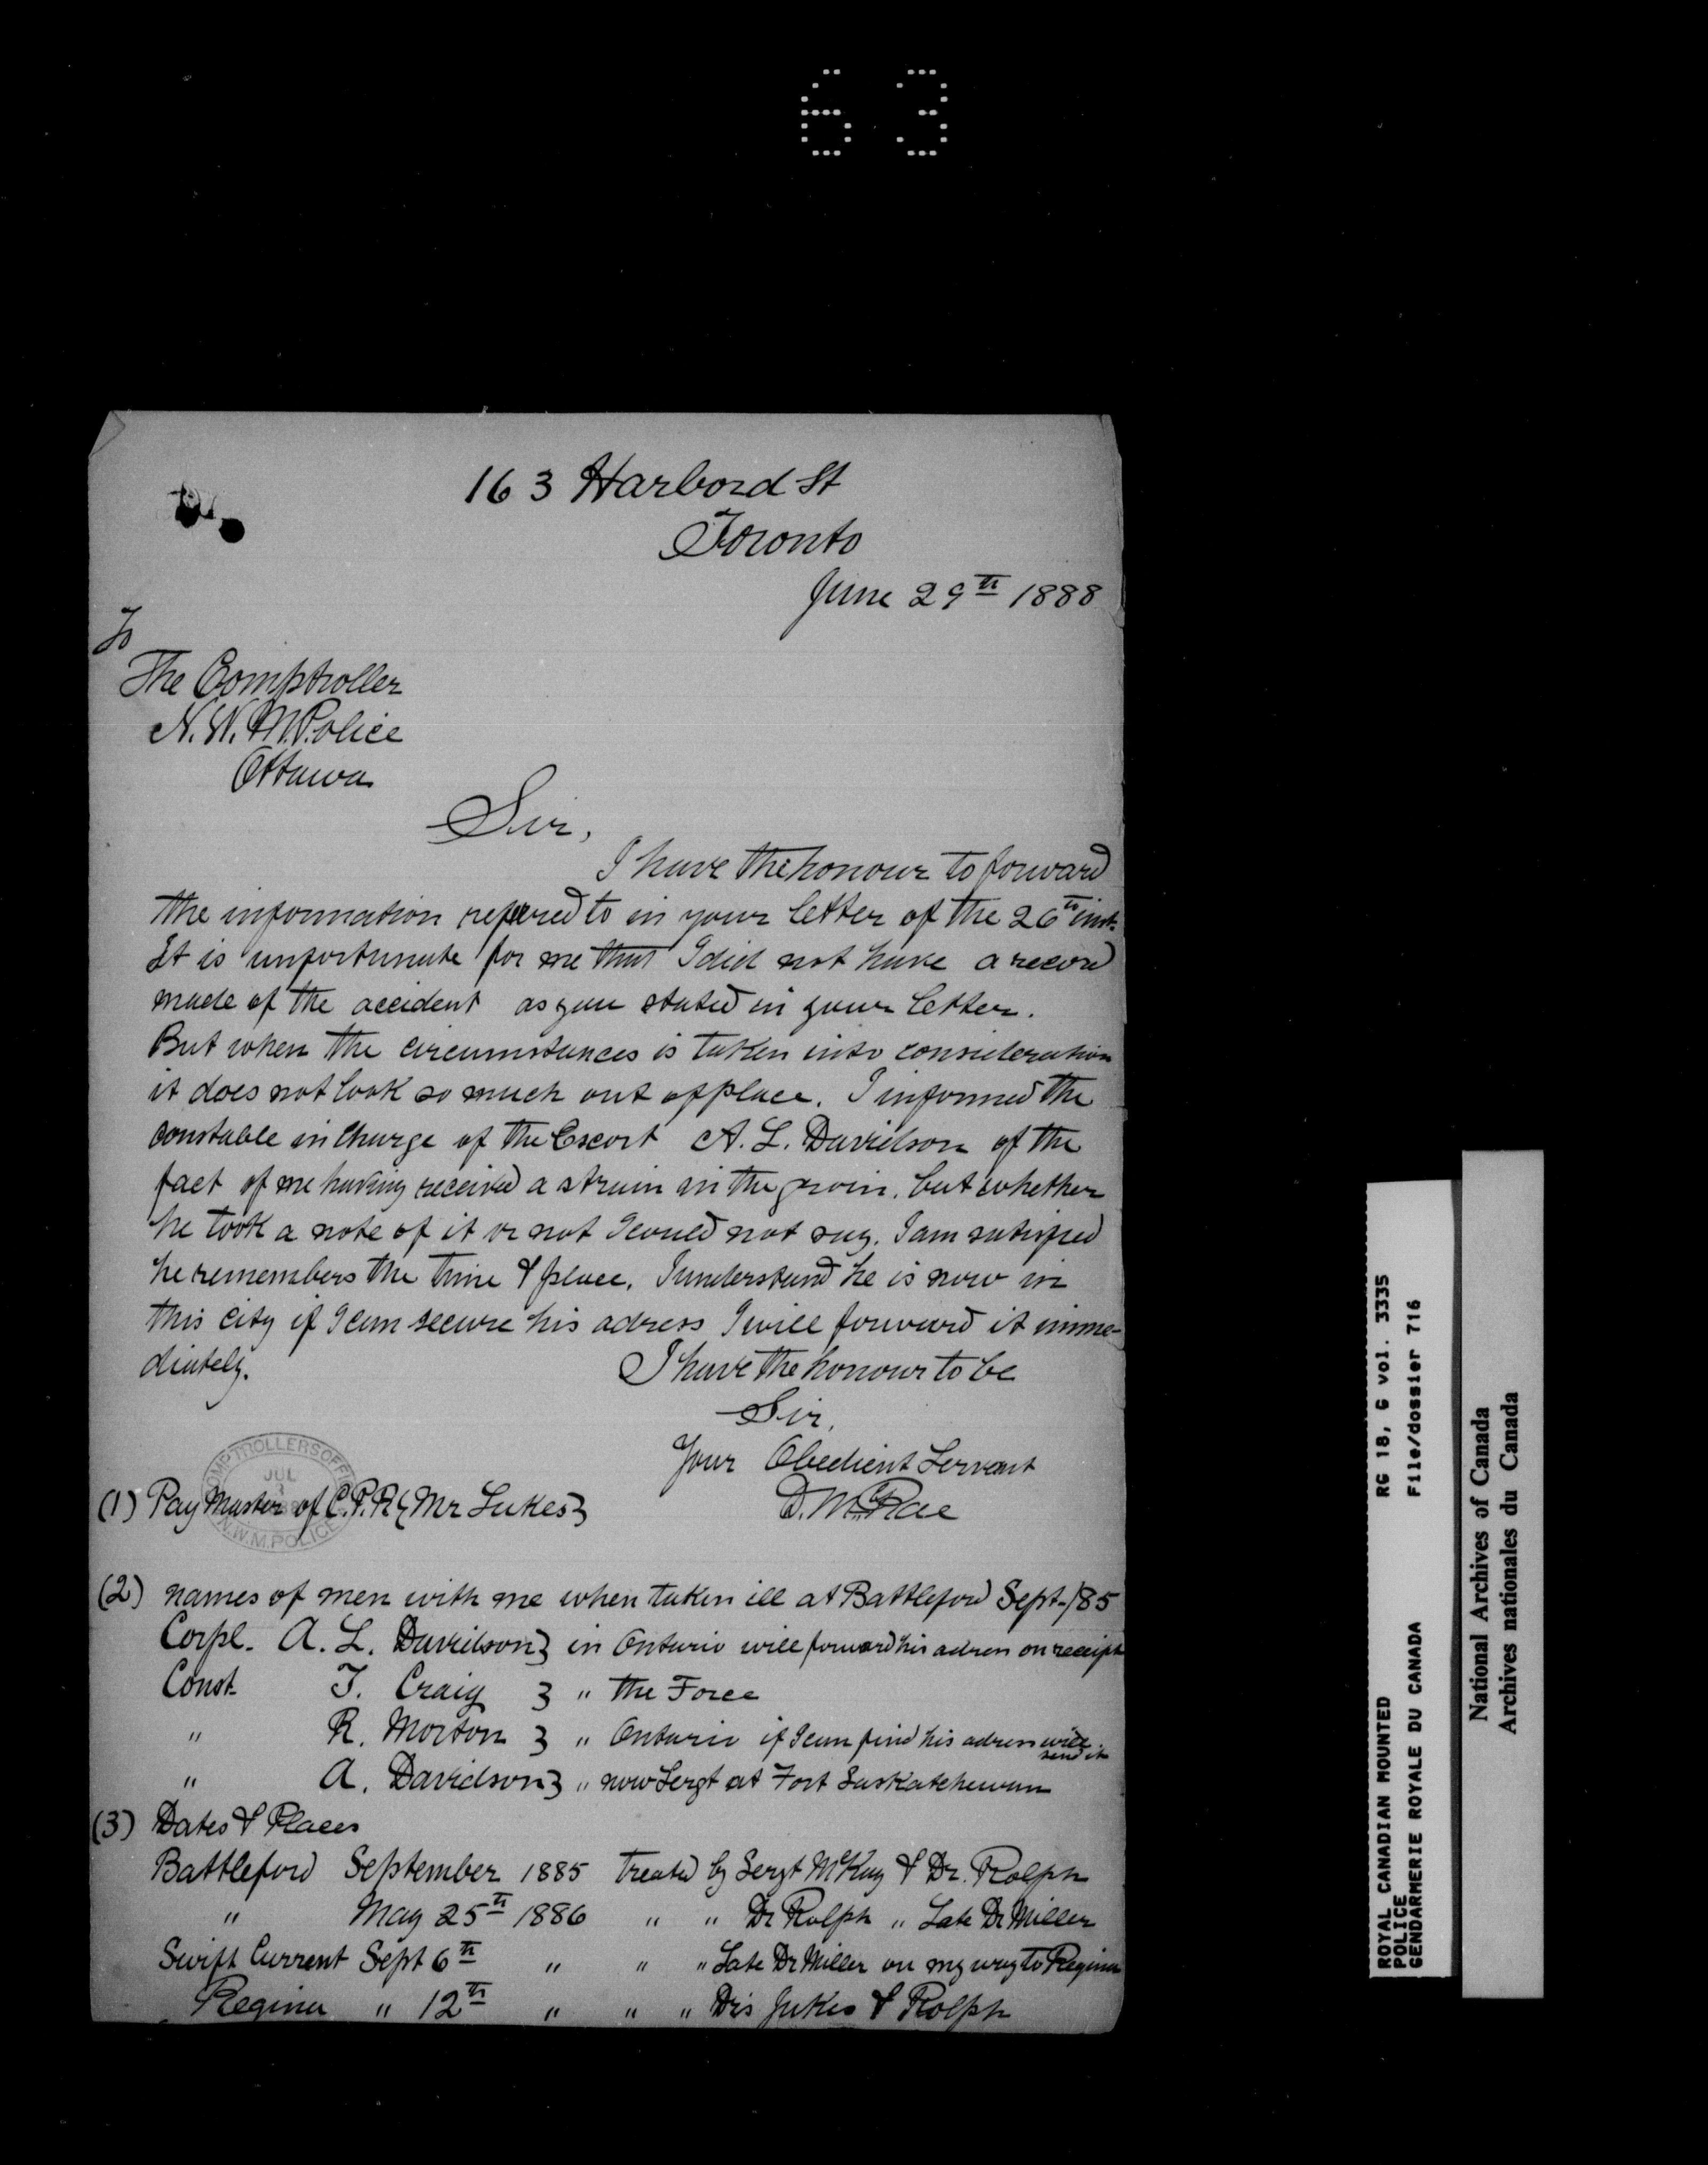 63
163 Harbord St
Toronto
June 29th 1888
To
The Comptroller
N.W.M.Police
Ottawa
Sir,
I have the honour to forward
the information refered to in your letter of the 26th inst.
It is unfortunate for me that I did not have a record
made of the accident as you stated in your letter.
But when the circumstances is taken into consideration
it does not look so much out of place. I informed the
constable in charge of the Escort A. L. Davidson of the
fact of me having received a strain in the groin, but whether
he took a note of it or not I could not say. I am satisfied
he remembers the time & place. I understand he is now in
this city if I can secure his adress I will forward it imme-
diately. I have the honour to be
Sir,
Your Obedient Servant
D. McRae
COMPTROLLERS OFFICE
JUL
3
N.W.M.POLICE
(1) Pay Master of C.P.R { Mr Lukes }
(2) names of men with me when taken ill at Battleford Sept-/85
Corpl. A. L. Davidson } in Ontario will forward his adress on receipt
Const. T. Craig } " the Force
" R. Morton } " Ontario if I can find his adress will send it
" A. Davidson } " now Sergt at Fort Saskatchewan
(3) Dates & Places
Battleford September 1885 treated by Sergt McKay & Dr. Rolph
" May 25th 1886 " " Dr Rolph " Late Dr Miller
Swift Current Sept 6th " " " Late Dr Miller on my way to Regina
Regina " 12th " " " Drs Jukes & Rolph
ROYAL CANADIAN MOUNTED RG 18, G vol. 3335
POLICE
GENDARMERIE ROYALE DU CANADA File/dossier 716
National Archives of Canada
Archives nationales du Canada